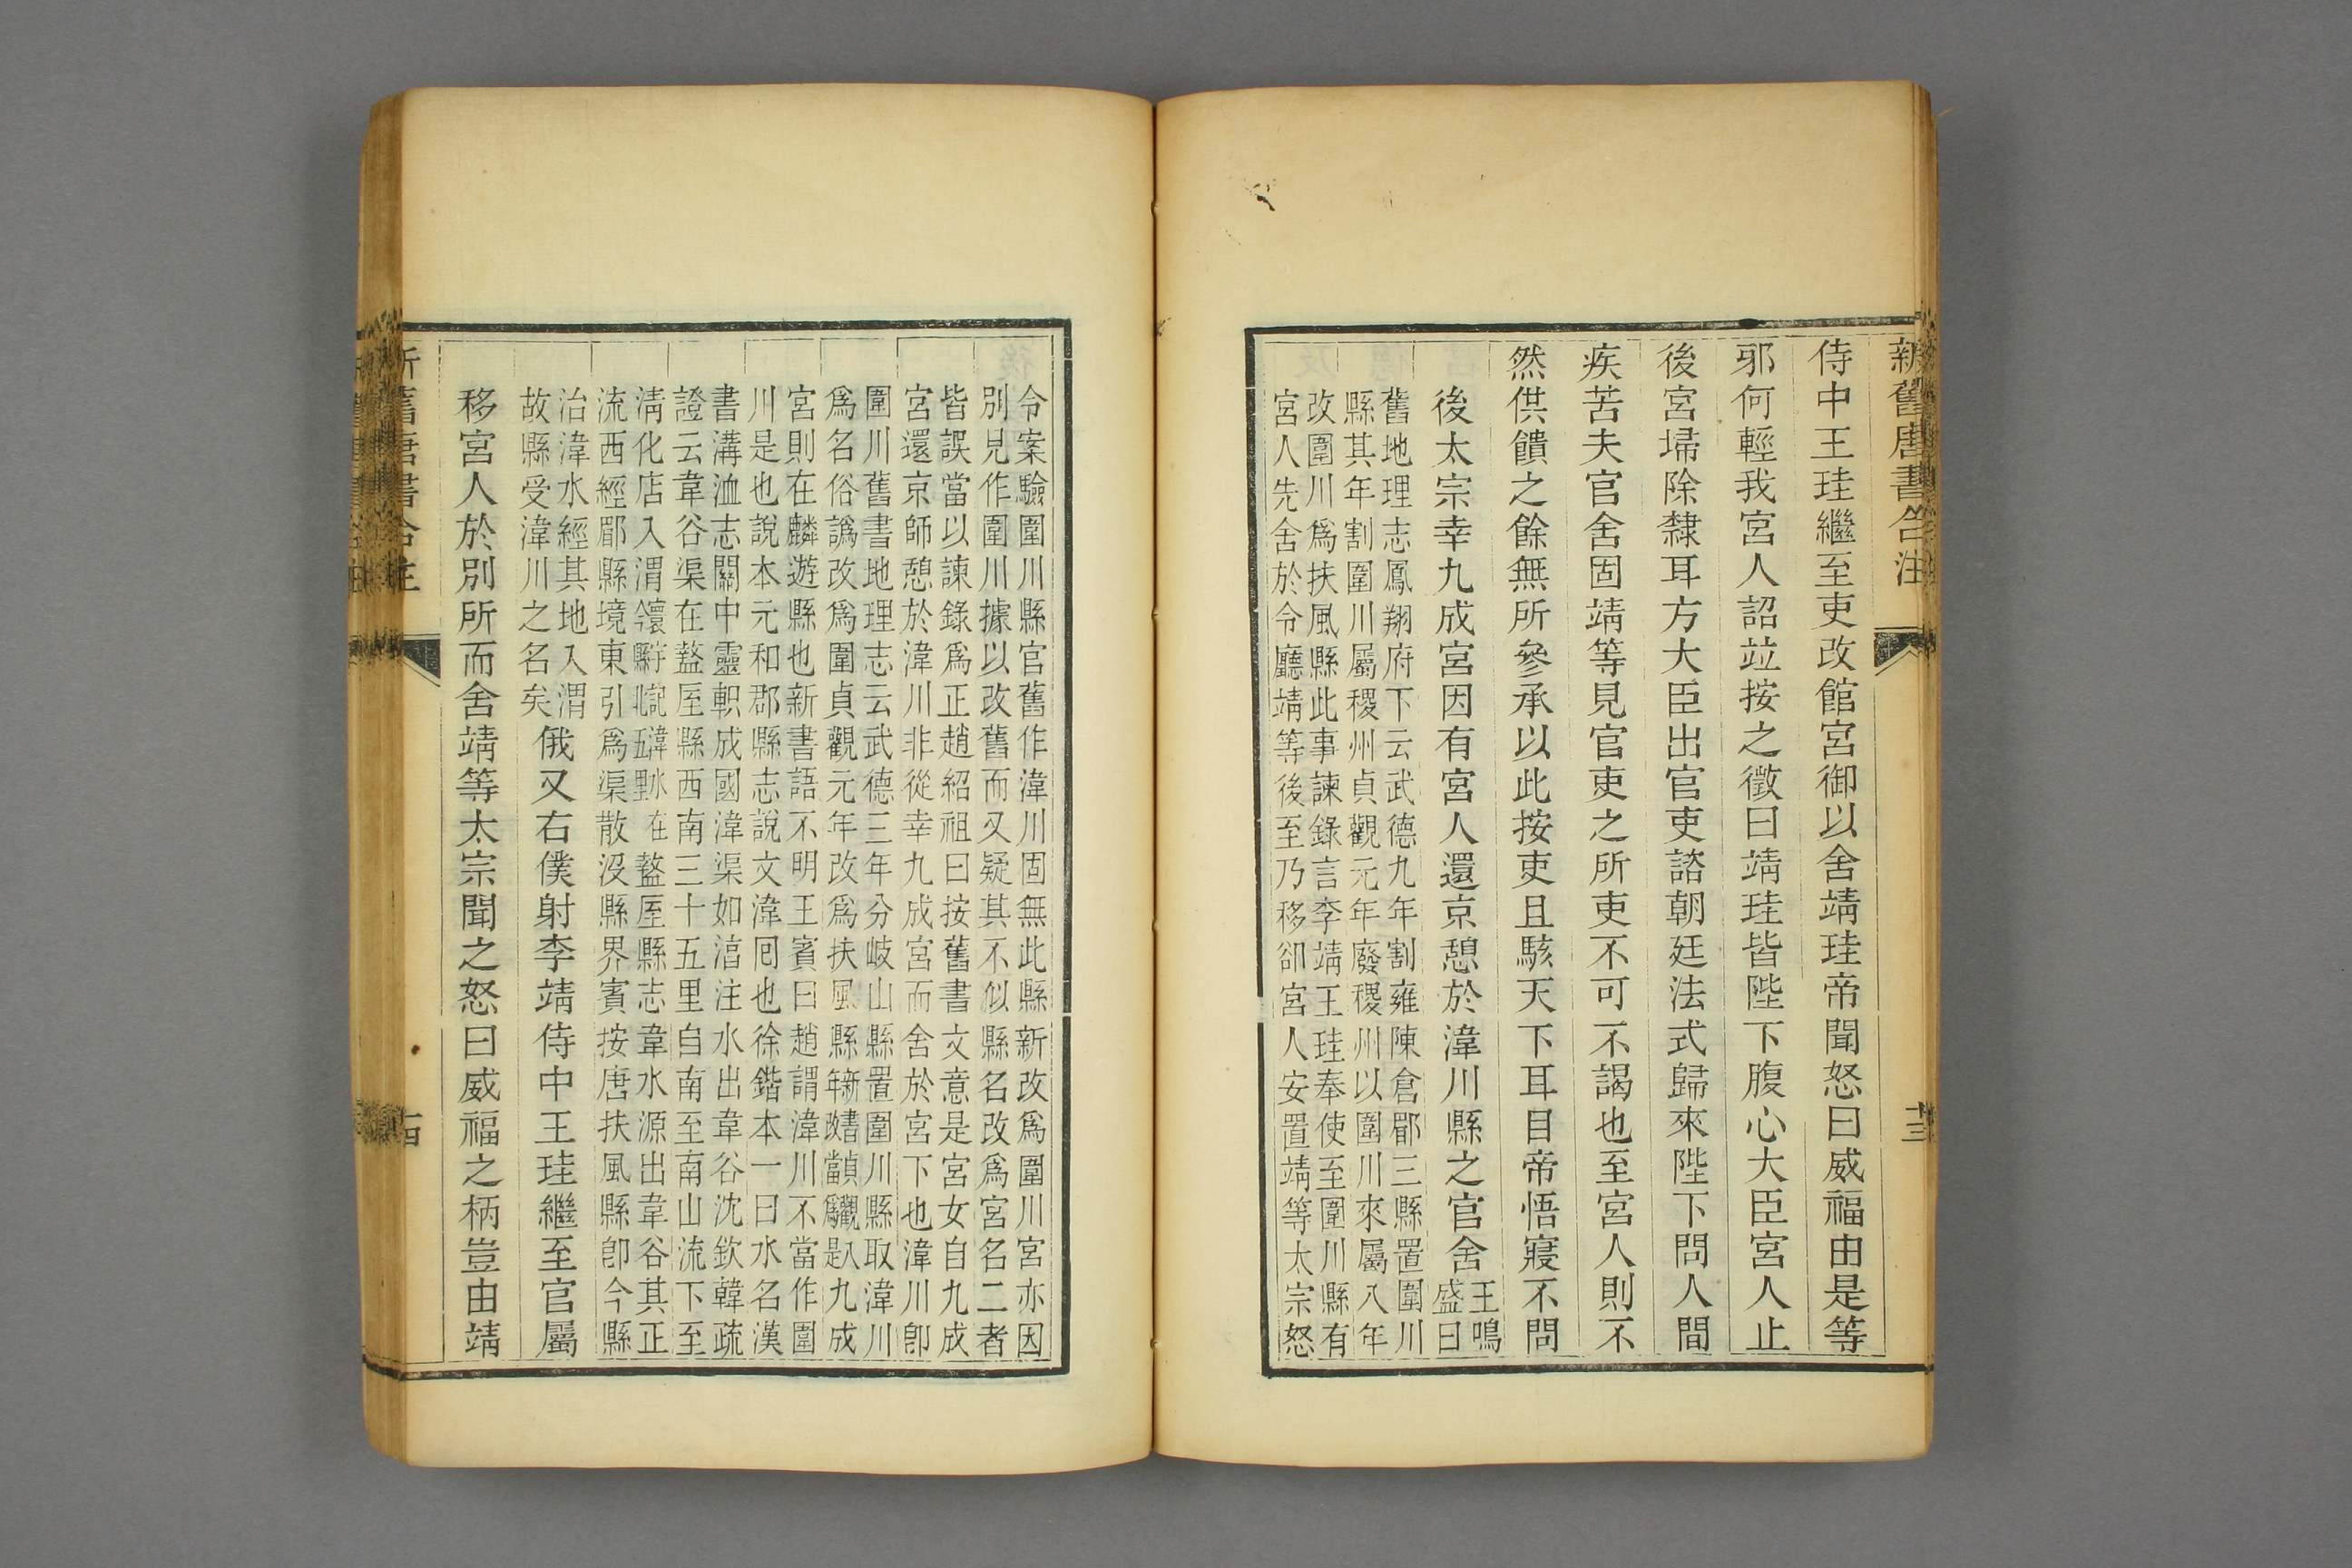 新舊唐書合注
十三
侍中王珪繼至吏改館宮御以舍靖珪帝聞怒曰威福由是等
邪何輕我宮人詔竝按之徵曰靖珪皆陛下腹心大臣宮人止
後宮埽除隸耳方大臣出官吏諮朝廷法式歸來陛下問人間
疾苦夫官舍固靖等見官吏之所吏不可不謁也至宮人則不
然供饋之餘無所參承以此按吏且駭天下耳目帝悟寢不問
後太宗幸九成宮因有宮人還京憩於湋川縣之官舍王鳴
盛曰
舊地理志鳳翔府下云武德九年割雍陳倉郿三縣置圍川
縣其年割圍川屬稷州貞觀元年廢稷州以圍川來屬八年
改圍川爲扶風縣此事諫錄言李靖王珪奉使至圍川縣有
宮人先舍於令廳靖等後至乃移卻宮人安置靖等太宗怒
令案驗圍川縣官舊作湋川固無此縣新改爲圍川宮亦因
別見作圍川據以改舊而又疑其不似縣名改爲宮名二者
皆誤當以諫錄爲正趙紹祖曰按舊書文意是宮女自九成
宮還京師憩於湋川非從幸九成宮而舍於宮下也湋川卽
圍川舊書地理志云武德三年分岐山縣置圍川縣取湋川
爲名俗譌改爲圍貞觀元年改爲扶風縣 九成
宮則在麟遊縣也新書語不明王賓曰趙謂湋川不當作圍
川是也說本元和郡縣志說文湋囘也徐鍇本一曰水名漢
書溝洫志關中靈軹成國湋渠如湻注水出韋谷沈欽韓疏
證云韋谷渠在盩厔縣西南三十五里自南至南山流下至
淸化店入渭 在盩厔縣志韋水源出韋谷其正
流西經郿縣境東引爲渠散沒縣界賓按唐扶風縣卽今縣
治湋水經其地入渭
故縣受湋川之名矣俄又右僕射李靖侍中王珪繼至官屬
移宮人於別所而舍靖等太宗聞之怒曰威福之柄豈由靖
新舊唐書合注
十四